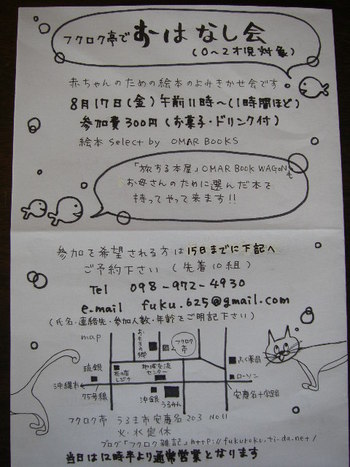 フクロク亭で おはなし会
(0～2才児対象)
赤ちゃんのための絵本のよみきかせ会です
8月17日(金)午前11時～(1時間ほど)
参加費300円(お菓子・ドリンク付)
絵本 Select by OMAR BOOKS
「旅する本屋」OMAR BOOK WAGON も
お母さんのために選んだ本を
持ってやって来ます!!
参加を希望される方は15日までに下記へ
ご予約下さい (先着10組)
Tel 098-972-4930
e-mail fuku.625@gmail.com
(氏名・連絡先・参加人数・年齢をご明記下さい)
map
フクロク亭
琉銀
沖縄市
75号線
沖銀
ローソン
安慶名十字路
フクロク亭 うるま市安慶名203 No11
火・水定休
ブログ「フクロク雑記」http://fukuroku.ti-da.net/
当日は12時半より通常営業となります